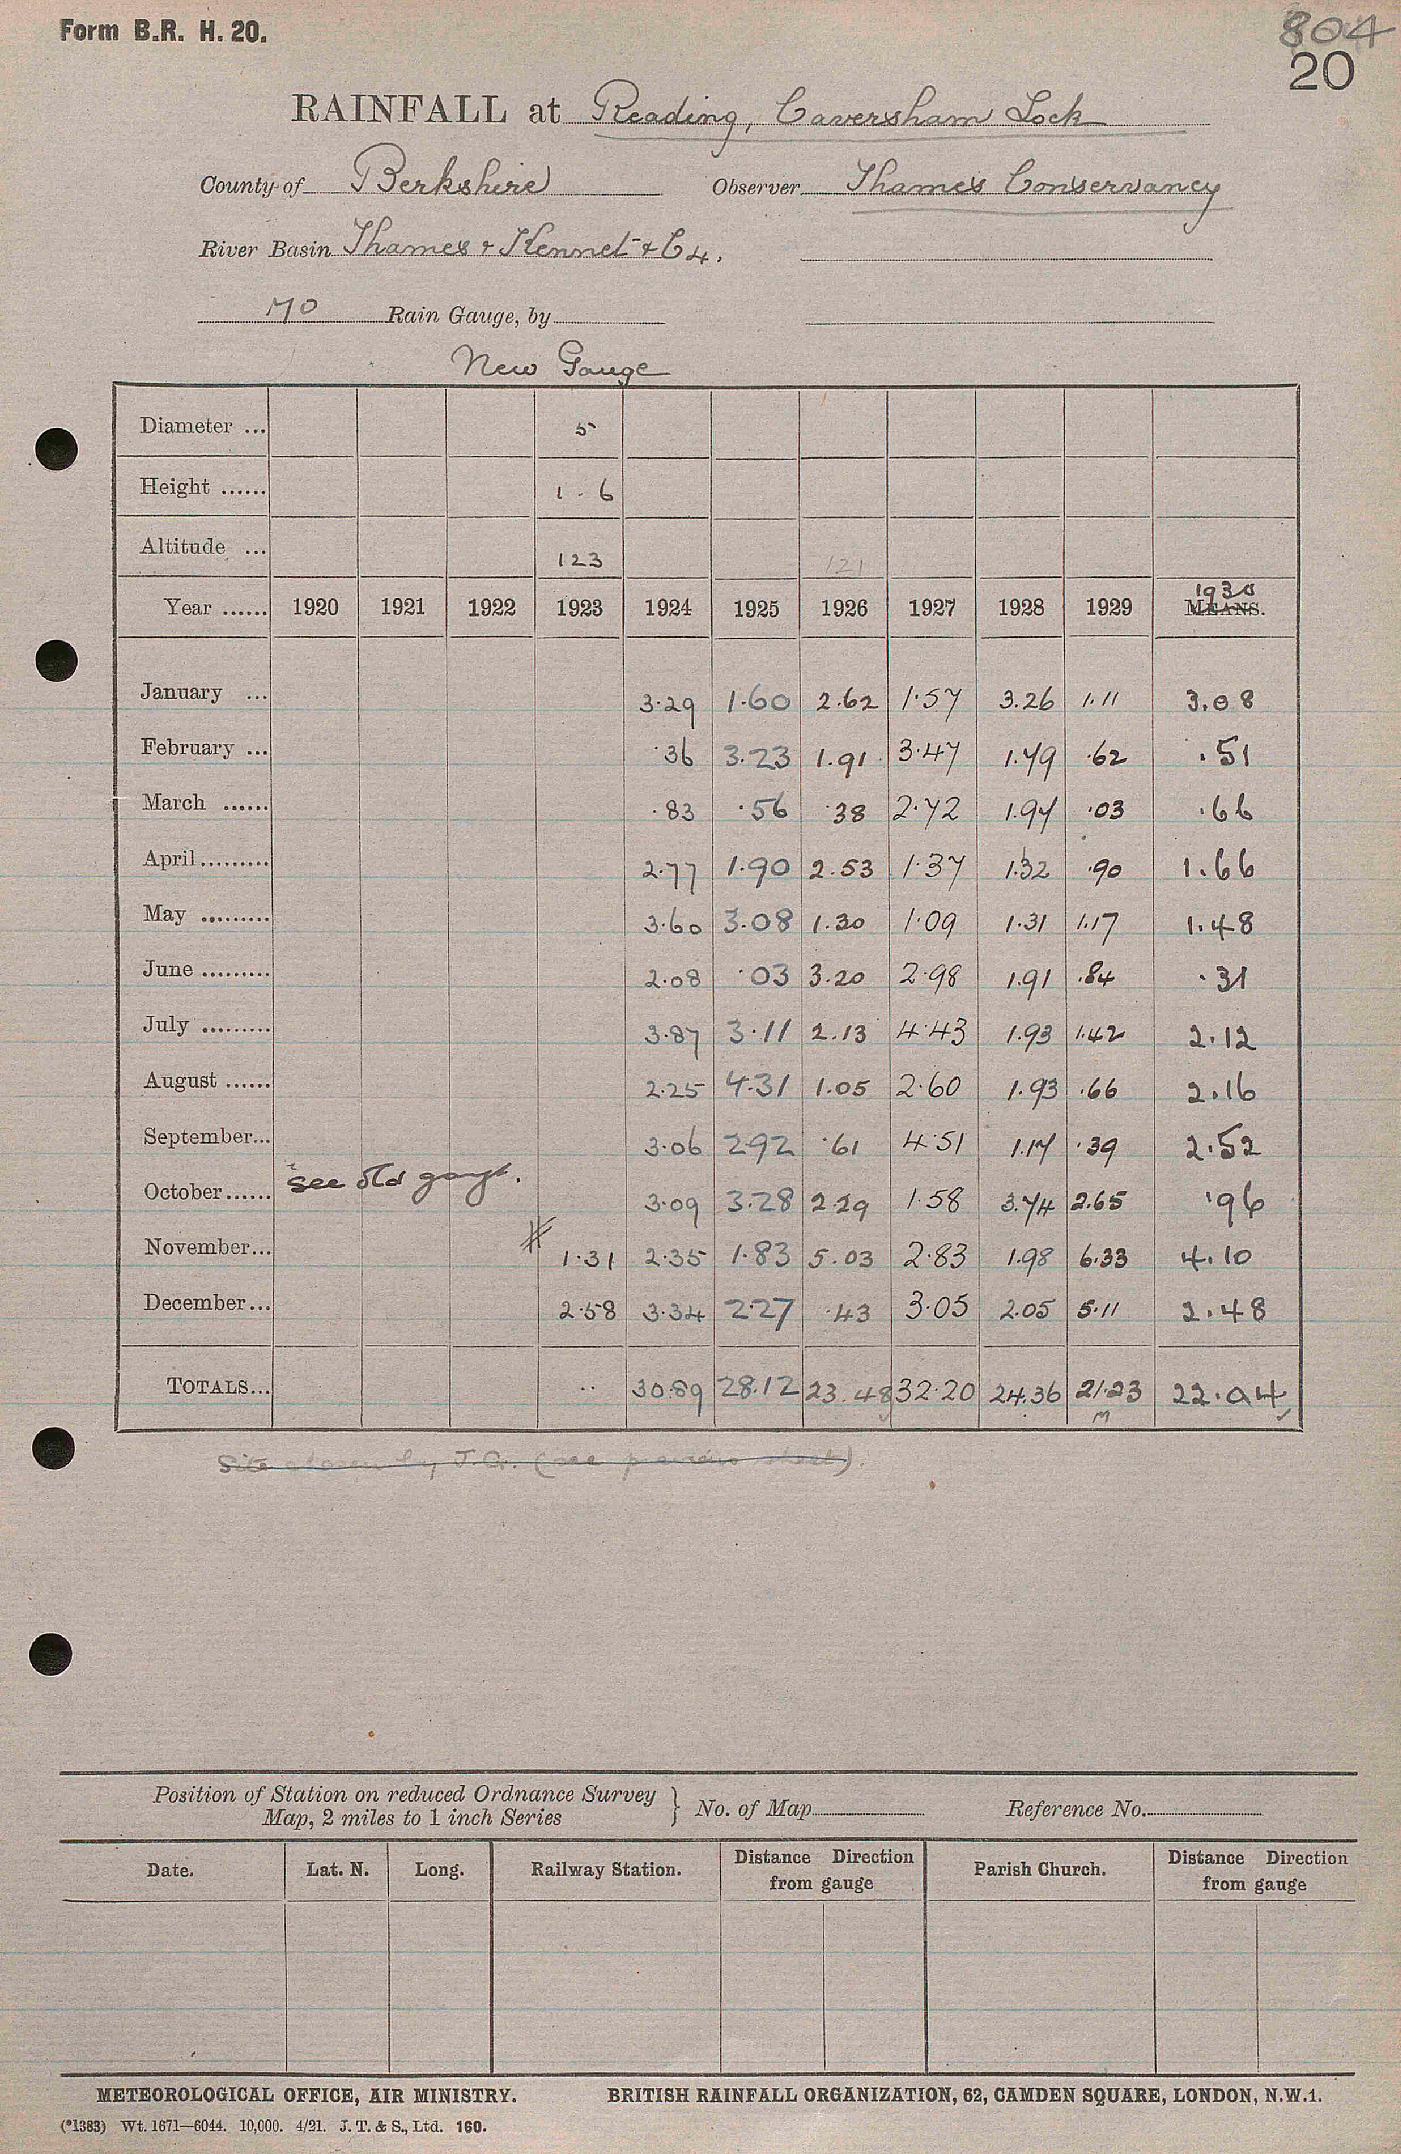 Form B.R. H. 20.
804
20
RAINFALL at Reading, Caversham Lock
County of Berkshire Observer Thames Conservancy
River Basin Thames & Kennet & C4.
MO Rain Gauge, by
New Gauge
Diameter ... 5
Height ...... 1.6
Altitude ... 123 121
1930
Year ...... 1920 1921 1922 1923 1924 1925 1926 1927 1928 1929 MEANS.
January ... 3.29 1.60 2.62 1.57 3.26 1.11 3.08
February ... .36 3.23 1.91 3.47 1.79 .62 .51
March ...... .83 .56 .38 2.72 1.97 .03 .66
April ......... 2.77 1.90 2.53 1.37 1.32 .90 1.66
May ......... 3.60 3.08 1.30 1.09 1.31 1.17 1.48
June ......... 2.08 .03 3.20 2.98 1.91 .84 .31
July ......... 3.87 3.11 2.13 4.43 1.93 1.42 2.12
August ...... 2.25 4.31 1.05 2.60 1.93 .66 2.16
September... 3.06 2.92 .61 4.51 1.17 .39 2.52
see old gauge.
October...... 3.09 3.28 2.29 1.58 3.74 2.65 .96
November... 1.31 2.35 1.83 5.03 2.83 1.98 6.33 4.10
December... 2.58 3.34 2.27 .43 3.05 2.05 5.11 2.48
TOTALS... .. 30.89 28.12 23.48 32.20 24.36 21.23 22.04
M
Site by J.G. (see previous sheet).
Position of Station on reduced Ordnance Survey
Map, 2 miles to 1 inch Series } No. of Map Reference No.
Date. Lat. N. Long. Railway Station. Distance Direction from gauge Parish Church. Distance Direction from gauge
METEOROLOGICAL OFFICE, AIR MINISTRY. BRITISH RAINFALL ORGANIZATION, 62, CAMDEN SQUARE, LONDON, N.W.1.
(*1383) Wt. 1671—6044. 10,000. 4/21. J. T. & S., Ltd. 160.